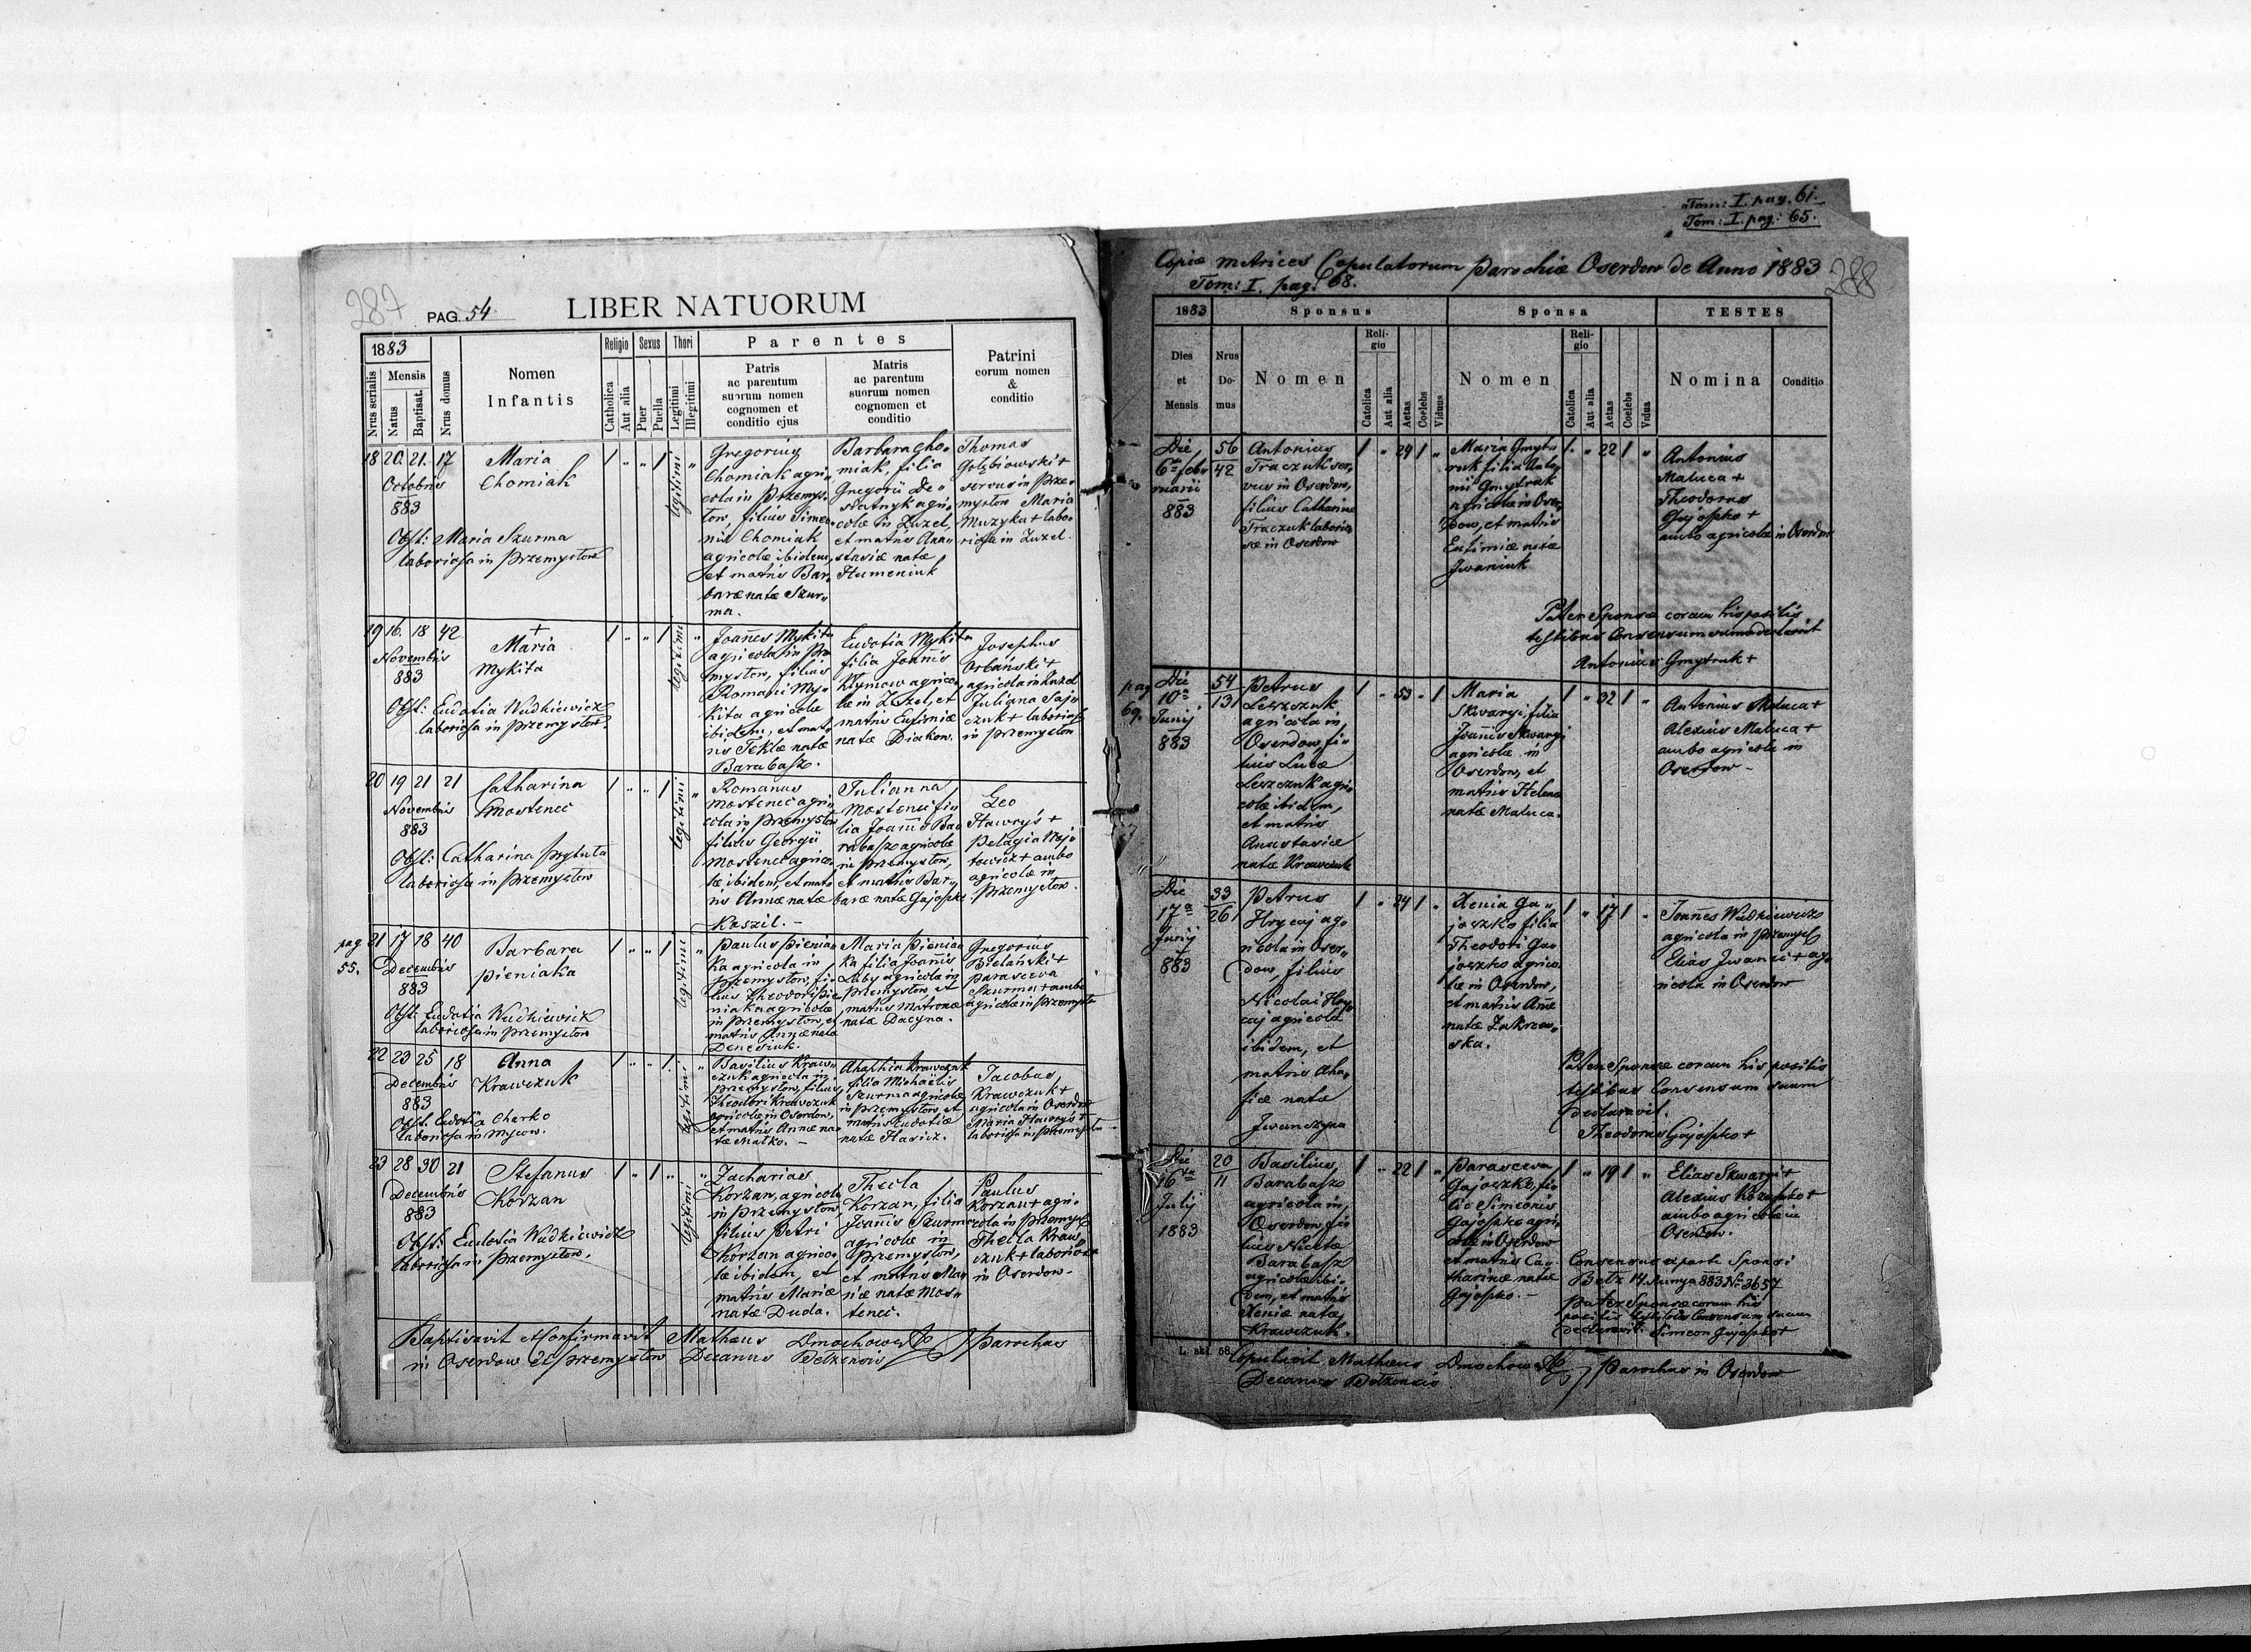 287
PAG. 54
LIBER NATUORUM
1883
Mensis
Nrus serialis
Natus
Baptisat.
Nrus domus
Nomen
Infantis
Religio
Catholica
Aut alia
Sexus
Puer
Puella
Thori
Legitimi
Illegitimi
Parentes
Patris
ac parentum
suorum nomen
cognomen et
conditio ejus
Matris
ac parentum
suorum nomen
cognomen et
conditio
Patrini
eorum nomen
&
conditio
18 20. 21. 17
Octobris
883
Maria
Chomiak
Obst: Maria Szurma
laboriosa in Przemysłow
legitimi
Gregorius
Chomiak agri„
cola in Przemys„
łow, filius Simeo„
nis Chomiak
agricolæ ibidem,
et matris Bar„
baræ natæ Szur„
ma.
Barbara Cho„
miak, filia
Gregorii
agri„
colæ in Żużel,
et matris Ana„
stasiæ natæ
Humeniuk
Thomas
Gołębiowski +
servus in Prze„
mysłow Maria
Muzyka + labo„
riosa in Żużel.
19 16. 18 42
Novembris
883
+
Maria
Mykita
Obst: Eudotia Wudkiewicz
laboriosa in Przemysłow.
legitimi
Joañes Mykita
agricola in Prze
mysłow, filius
Romani My„
kita agricolæ
ibidem, et mat„
ris Teklæ natæ
Barabasz.
Eudotia Mykita
filia Joañis
Klymow agrico„
læ in Żużel, et
matris Eufimiæ
natæ Diakow.
Josephus
Orbański +
agricola in Żużel
Juliana Saj„
czuk + laboriosa
in Przemysłow
20 19 21 21
Novembris
883
Catharina
Mostenec
Obst: Catharina Prytuła
laboriosa in Przemysłow
legitimi
Romanus
Mostenec agri„
cola in Przemysłow
filius Georgii
Mostenec agrico„
læ ibidem, et mat„
ris Annæ natæ
Koszil. –
Julianna
Mostenec fi„
lia Joañis Ba„
rabasz agricolæ
in Przemysłow,
et matris Bar„
baræ natæ Gajoszko
Leo
Hawryś +
Pelagia Woj„
towicz + ambo
agricolæ in
Przemysłow.
pag
55.
21 17 18 40
Decembris
883
Barbara
Pieniaka
Obst: Eudotia Wudkiewicz
laboriosa in Przemysłow
legitimi
Paulus Pienia„
ka agricola in
Przemysłow, fi„
lius Theodori Pie„
niaka agricolæ
in Przemysłow, et
matris Annæ natæ
Denesiuk.
Maria Pienia„
ka filia Joañis
Łuby agricolæ in
Przemysłow, et
matris Matronæ
natæ Dacyna.
Gregorius
Bielański +
Parasceva
Szurma + ambo
agricolæ in Przemysło
22 23 25 18
Decembris
883
Anna
Krawczuk
Obst. Eudotia Charko
laboriosa in Mycow.
legitimi
Basilius Kraw„
czuk agricola in
Przemysłow, filius
Theodori Krawczuk
agricolæ in Oserdow,
et matris Annæ na„
tæ Matko. –
Ahaphia Krawczuk
filia Michaelis
Szurma agricolæ
in Przemysłow, et
matris Eudotiæ
natæ Hawicz.
Jacobus
Krawczuk +
agricola in Oserdow
Maria Hawryś +
laboriosa in Przemysło
23 28 30 21
Decembris
883
Stefanus
Korzan
Obst: Eudotia Wudkiewicz
laboriosa in Przemysłow.
legitimi
Zacharias
Korzan, agricola
in Przemysłow
filius Petri
Korzan agrico„
læ ibidem, et
matris Mariæ
natæ Duda.
Thecla
Korzan, filia
Joañis Szurma
agricolæ in
Przemysłow,
et matris Ma„
riæ natæ Mos„
tenec.
Paulus
Korzan + agri„
cola in Przemysł
Thecla Kraw„
czuk + laboriosa
in Oserdow –
Baptisavit et Confirmavit Mathæus Dmochowski Parochus
in Oserdow et Przemysłow Decanus Bełzensis
Tom: I. pag. 61.
Tom: I. pag: 65.
Copiæ matrices Copulatorum Parochiæ Oserdow de Anno 1883
Tom: I. pag. 68.
288
1883
Dies
et
Mensis
Nrus
Do-
mus
Sponsus
Nomen
Reli-
gio
Catolica
Aut alia
Aetas
Coelebs
Viduus
Sponsa
Nomen
Reli-
gio
Catolica
Aut alia
Aetas
Coelebs
Vidua
TESTES
Nomina
Conditio
Die
6ta feb„
ruarii
883
56
42
Antonius
Traczuk ser„
vus in Oserdow,
filius Catharinæ
Traczuk laborio„
sæ in Oserdow
29
Maria Gmyt„
ruk filia Anto„
nii Gmytruk
agricolæ in Oser„
dow, et matris
Eufimiæ natæ
Iwaniuk
22
Antonius
Maluca +
Theodorus
Gajoszko +
ambo agricolæ in Oserdow
Pater Sponsæ coram his positis
testibus Consensum suum declaravit
Antonius Gmytruk +
pag
69.
Die
10ma
Junij
883
54
13
Petrus
Leszczuk
agricola in
Oserdow, fi„
lius Lucæ
Leszczuk agri„
colæ ibidem,
et matris
Anastasiæ
natæ Krawczuk
53
Maria
Skwaryi, filia
Joañis Skwaryi
agricolæ in
Oserdow, et
matris Helenæ
natæ Maluca.
32
Antonius Maluca +
Alexius Maluca +
ambo agricolæ in
Oserdow –
Die
17a
Junij
883
33
26
Petrus
Hrycaj ag„
ricola in Oser„
dow, filius
Nicolai Hry„
caj agricolæ
ibidem, et
matris Aha„
fiæ natæ
Iwanczyna
24
Xenia Ga„
joszko filia
Theodori Ga„
joszko agrico„
læ in Oserdow,
et matris Añæ
natæ Zakrzew„
ska.
17
Joañes Wudkiewicz
agricola in Przemysł
Elias Iwanec + ag„
ricola in Oserdow
Pater Sponsæ coram his positis
testibus Consensum suum
declaravit.
Theodorus Gajoszko +
Die
16ta
Julij
1883
20
11
Basilius
Barabasz
agricola in
Oserdow, fi„
lius Nicetæ
Barabasz
agricolæ ibi„
dem, et matris
Xeniæ natæ
Krawczuk.
22
Parasceva
Gajoszko, fi„
lia Simeonis
Gajoszko agri„
colæ in Oserdow
et matris Ca„
tharinæ natæ
Gajoszko. –
19
Elias Skwaryi +
Alexius +
ambo agricolæ in
Oserdow.
Consensus ex parte Sponsi
Bełz 14. 883 No 3657
Pater Sponsæ coram his
positis testibus Consensum suum
declaravit Simeon Gajoszko +
L. skł. 58.
Copulavit Mathæus Dmochowski Parochus in Oserdow
Decanus Bełzensis